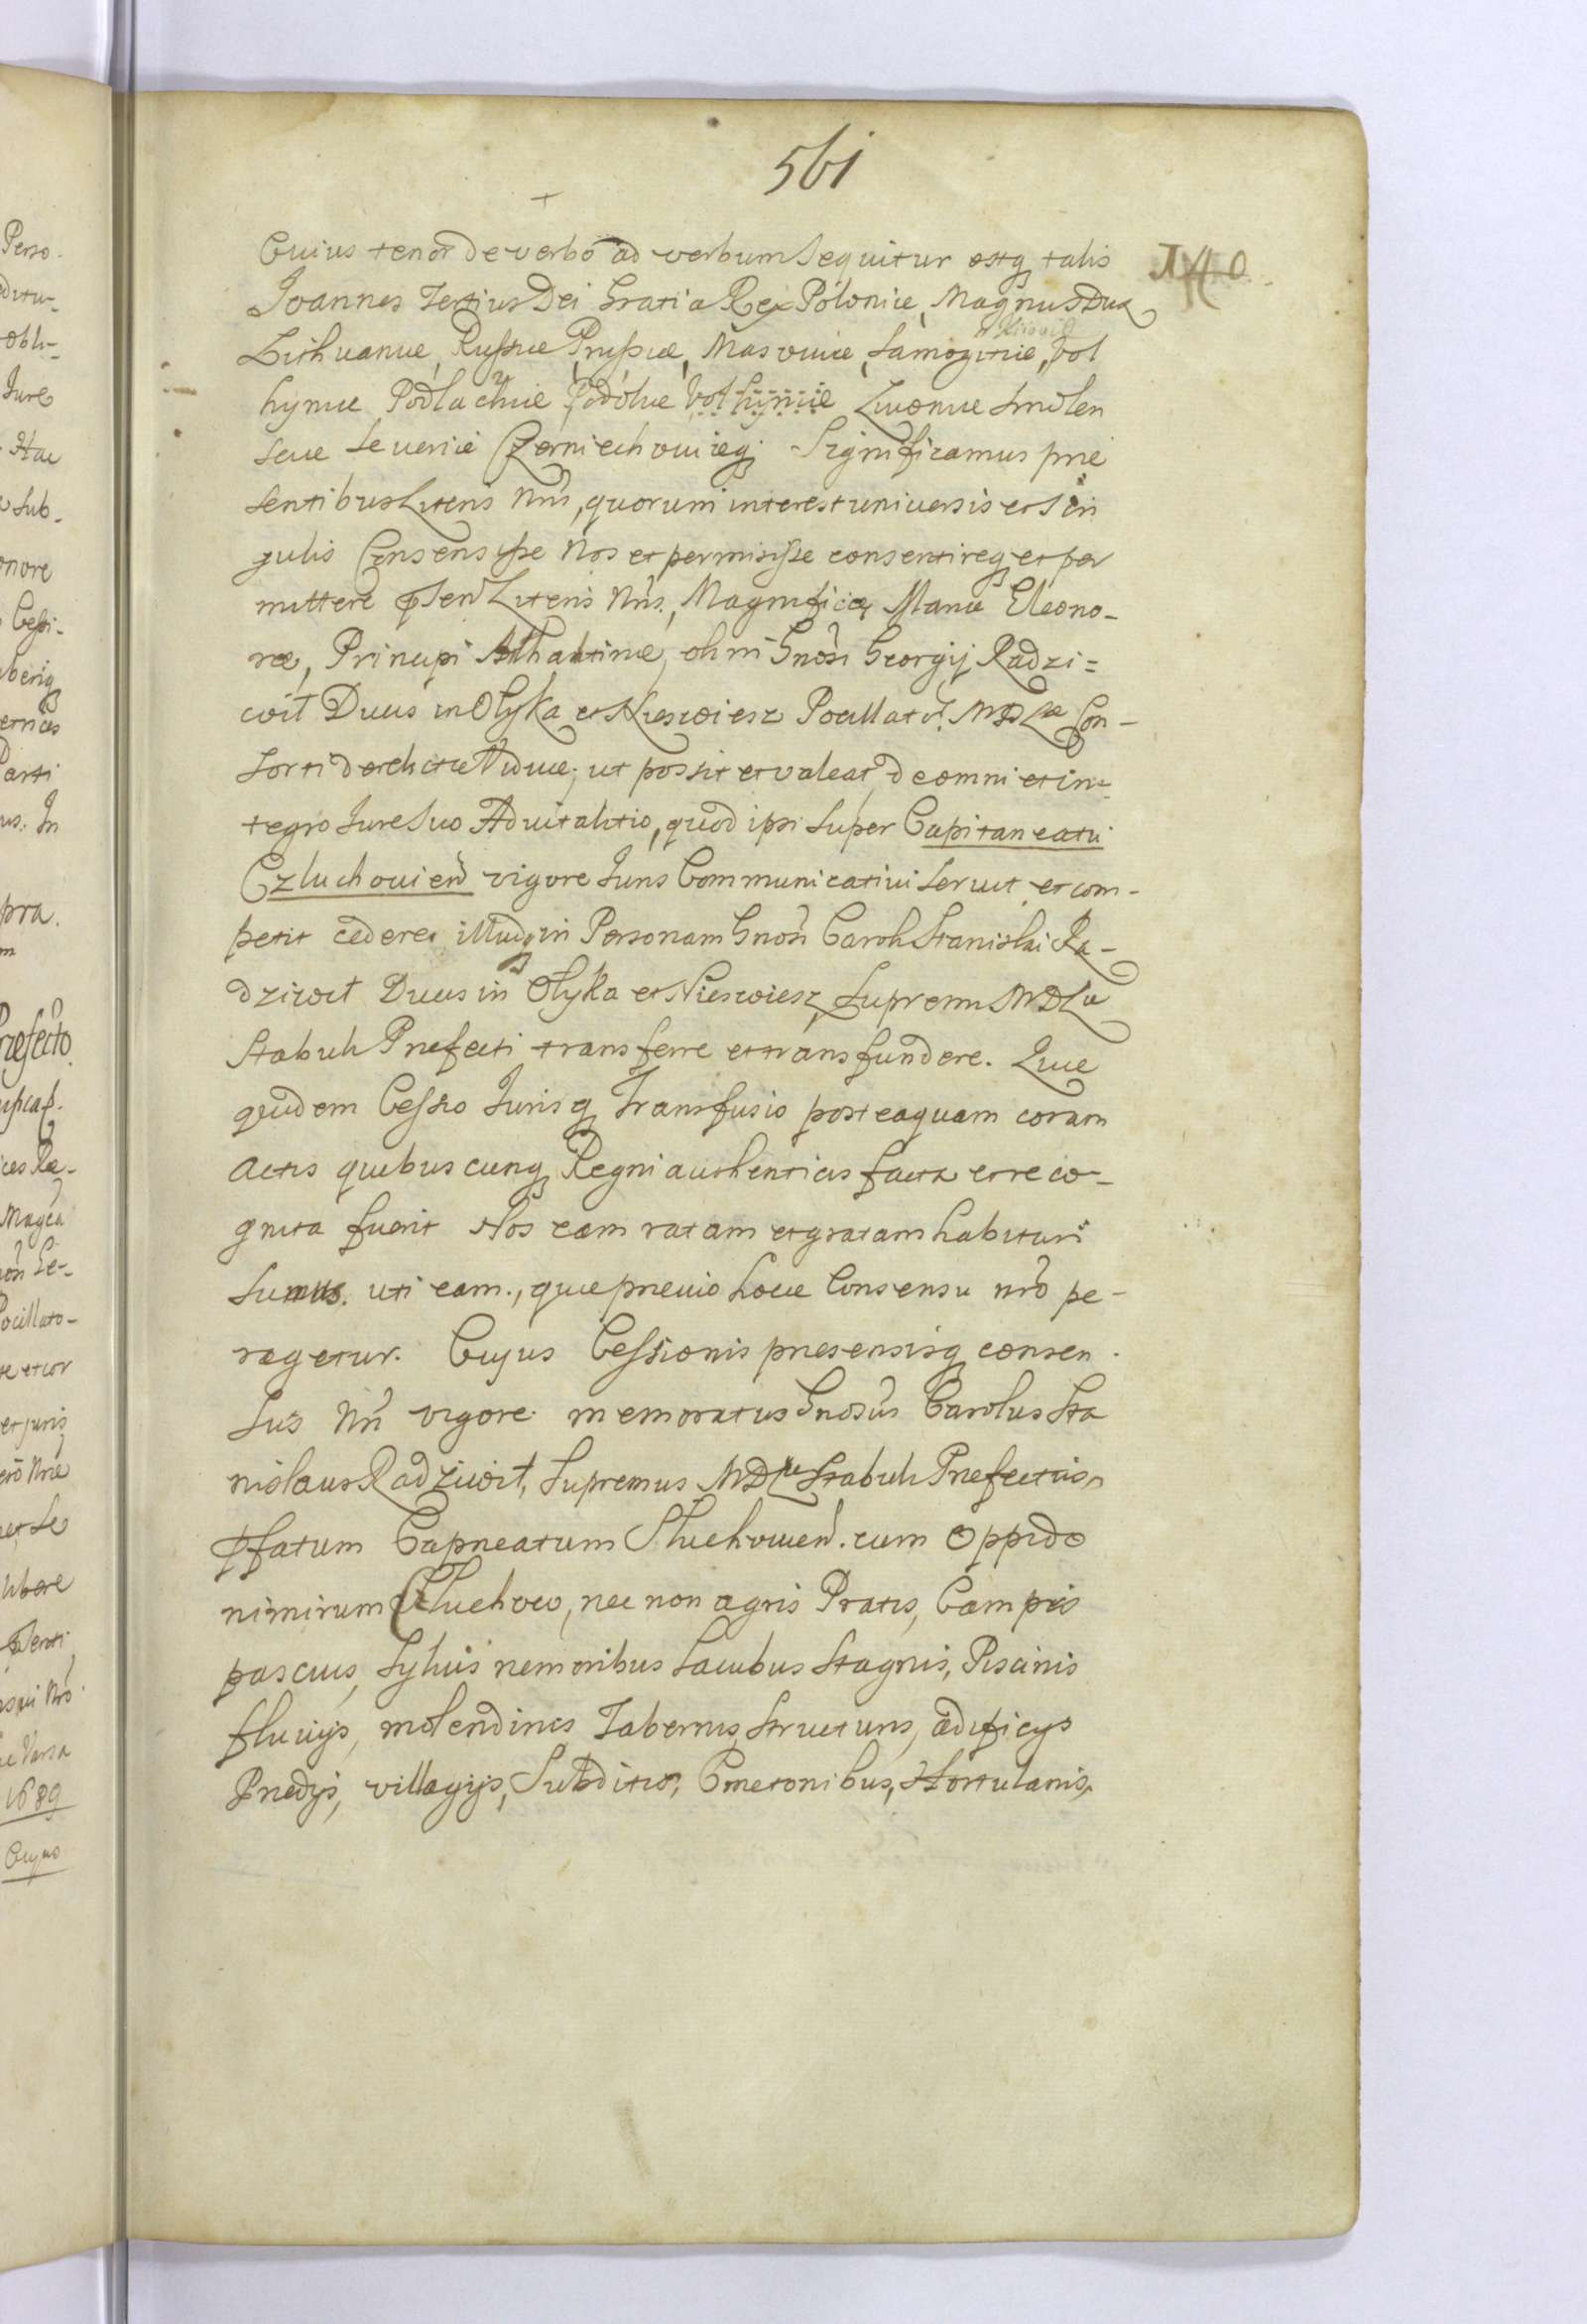 561
Cuius tenor de verbo ad verbum sequitur estq talis
Joannes Tertius Dei Gratia Rex Poloniæ, Magnus Dux
Lithuaniæ, Russiæ Prussiæ, Masoviæ, Samogitiæ, Vol
hyniæ Podlachiæ Podoliæ Volhyniæ Livoniæ Smolen
sciæ Severiæ Czerniechoviæq. Significamus præ
sentibus Literis Nris, quorum interest universis et sin
gulis Consensisse Nos et permisisse consentireq et per
mittere pñsen Literis Nris, Magnificæ Mariæ Eleono-
ræ, Principi Anhaltinæ, olim Gnosi Georgij Radzi=
wił Ducis in Olyka et Nieswiesz Pocillatoris MDL Con-
sorti derelictæ Viduæ, ut possit et valeat de omni et in-
tegro Jure suo Advitalitio, quod ipsi super Capitaneatu
Czluchovien vigore Juris Communicativi servit et com-
petit cedere, illudq in Personam Gnosi Caroli Stanislai Ra-
dziwił Ducis in Olyka et Nieswiesz, Supremi MDL
Stabuli Præfecti transferre et transfundere. Quæ
quidem Cessio Jurisq Transfusio posteaquam coram
Actis quibuscunq Regni authenticis facta et reco-
gnita fuerit Nos eam ratam et gratam habituri
sumus. uti eam., quæ prævio hocce Consensu nro pe-
ragetur. Cujus Cessionis præsensisq consen
sus Nri vigore memoratus Gnosus Carolus Sta
nislaus Radziwił, Supremus MDL Stabuli Præfectus,
pfatum Capneatum Sluchovien. cum Oppido
nimirum Człuchow, nec non agris Pratis, Campis
pascuis, Sylvis nemoribus Lacubus Stagnis, Piscinis
fluvijs, molendinis Tabernis, structuris, ædificijs
Prædijs, villagijs, Subditis, Cmetonibus, Hortulanis,